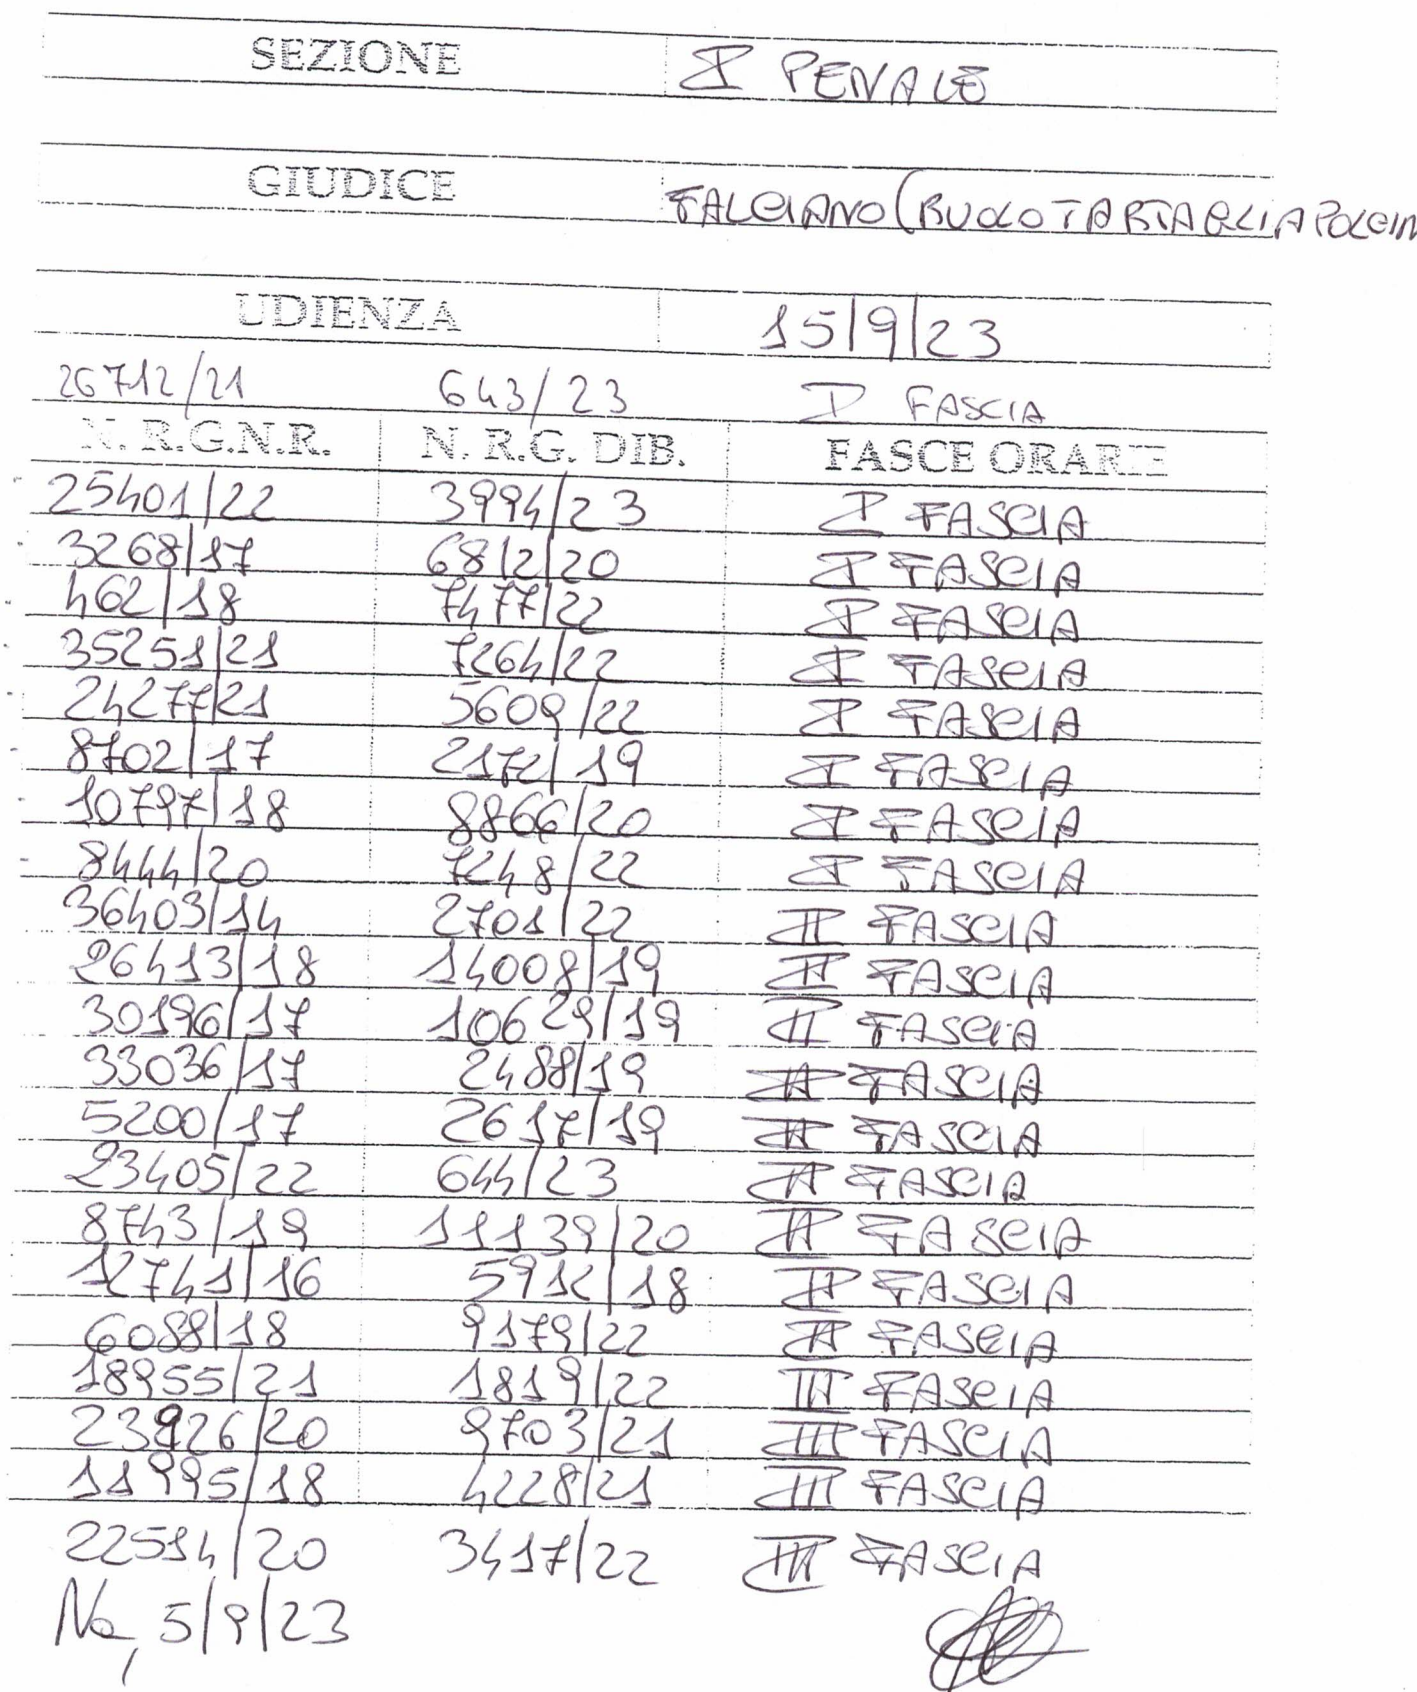 SEZIONE I PENALE
GIUDICE FALCIANO (RUOLO TARTAGLIA POLCIN
UDIENZA 15/9/23
26712/21 643/23 I FASCIA
N. R.G.N.R. N. R.G. DIB. FASCE ORARIE
25401/22 3994/23 I FASCIA
3268/17 6812/20 I FASCIA
462/18 7477/22 I FASCIA
35251/21 7264/22 I FASCIA
24277/21 5609/22 I FASCIA
8702/17 2172/19 I FASCIA
10797/18 8866/20 I FASCIA
8444/20 7248/22 I FASCIA
36403/14 2701/22 II FASCIA
26413/18 14008/19 II FASCIA
30196/17 10629/19 II FASCIA
33036/17 2488/19 II FASCIA
5200/17 2617/19 II FASCIA
23405/22 644/23 II FASCIA
8743/19 11139/20 II FASCIA
12741/16 5912/18 II FASCIA
6088/18 9179/22 II FASCIA
18955/21 1819/22 III FASCIA
23926/20 9703/21 III FASCIA
11995/18 4228/21 III FASCIA
22514/20 3417/22 III FASCIA
Na, 5/9/23